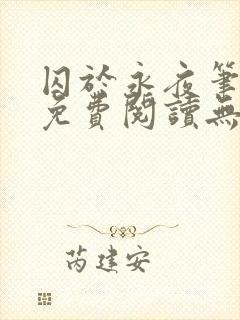 囚於永夜筆
免費閱讀無
芮建安